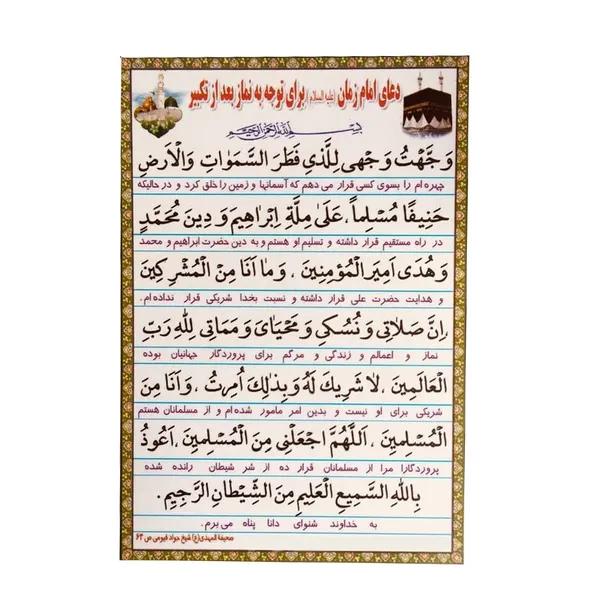 دعای امام زمان (علیه السلام) برای توجه به نماز بعد از تکبیر
بسم الله الرحمن الرحیم
وَجَّهْتُ وَجْهی لِلَّذی فَطَرَ السَّمٰوَاتِ وَالْاَرْضِ
چهره ام را بسوی کسی قرار می دهم که آسمانها و زمین را خلق کرد و در حالیکه
حَنیفًا مُسْلِماً، عَلیٰ مِلَّةِ اِبْراهیمَ وَ دینِ مُحَمَّدٍ
در راه مستقیم قرار داشته و تسلیم او هستم و به دین حضرت ابراهیم و محمد
وَ هُدَی اَمیرِ الْمُؤْمِنینَ ، وَ مٰا اَنَا مِنَ الْمُشْرِکینَ
و هدایت حضرت علی قرار داشته و نسبت بخدا شریکی قرار نداده ام.
،اِنَّ صَلاٰتی وَ نُسُکی وَ مَحْیٰایَ وَ مَمٰاتی لِلّٰهِ رَبِّ
نماز و اعمالم و زندگی و مرگم برای پروردگار جهانیان بوده
الْعٰالَمینَ ، لاٰ شَریكَ لَهُ وَ بِذٰلِكَ اُمِرْتُ ، وَ اَنَا مِنَ
شریکی برای او نیست و بدین امر مامور شده ام و از مسلمانان هستم
الْمُسْلِمینَ ، اَللّٰهُمَّ اجْعَلْنی مِنَ الْمُسْلِمینَ ،اَعُوذُ
پروردگارا مرا از مسلمانان قرار ده از شر شیطان رانده شده
بِاللّٰهِ السَّمیعِ الْعَلیمِ مِنَ الشَّیْطٰانِ الرَّجیمِ.
به خداوند شنوای دانا پناه می برم.
صحیفة المهدی(ع) شیخ جواد قیومی ص ۶۲